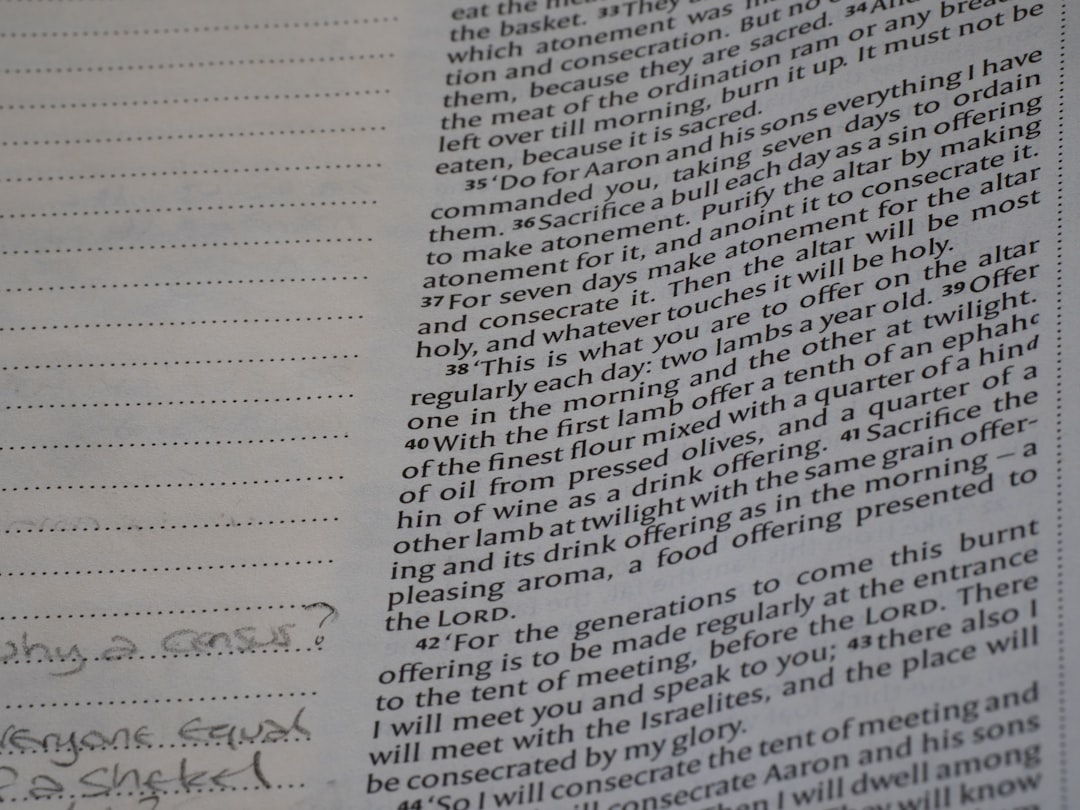 why a census?
everyone equal
? a shekel
eat the
the basket. 33 They
which atonement was
tion and consecration. But no
them, because they are sacred. 34 And
the meat of the ordination ram or any bread
left over till morning, burn it up. It must not be
eaten, because it is sacred.
35 ‘Do for Aaron and his sons everything I have
commanded you, taking seven days to ordain
them. 36 Sacrifice a bull each day as a sin offering
to make atonement. Purify the altar by making
atonement for it, and anoint it to consecrate it.
37 For seven days make atonement for the altar
and consecrate it. Then the altar will be most
holy, and whatever touches it will be holy.
38 ‘This is what you are to offer on the altar
regularly each day: two lambs a year old. 39 Offer
one in the morning and the other at twilight.
40 With the first lamb offer a tenth of an ephah c
of the finest flour mixed with a quarter of a hin d
of oil from pressed olives, and a quarter of a
hin of wine as a drink offering. 41 Sacrifice the
other lamb at twilight with the same grain offer-
ing and its drink offering as in the morning – a
pleasing aroma, a food offering presented to
the LORD.
42 ‘For the generations to come this burnt
offering is to be made regularly at the entrance
to the tent of meeting, before the LORD. There
I will meet you and speak to you; 43 there also I
will meet with the Israelites, and the place will
be consecrated by my glory.
44 ‘So I will consecrate the tent of meeting and
consecrate Aaron and his sons
Then I will dwell among
They will know